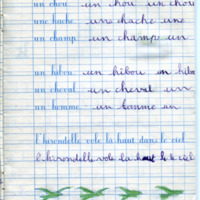 un chou un chou un chou
une hache une hache une
un champ un champ un
un hibou un hibou un hibo
un cheval un cheval un
un homme un homme un
l'hirondelle vole là haut dans le ciel
l'hirondelle vole là haut le ciel